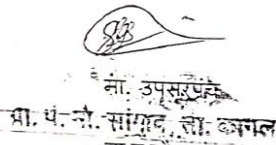 मा. उपसरपंच
ग्रा. पं. मौ. सांगाव, ता. कागल